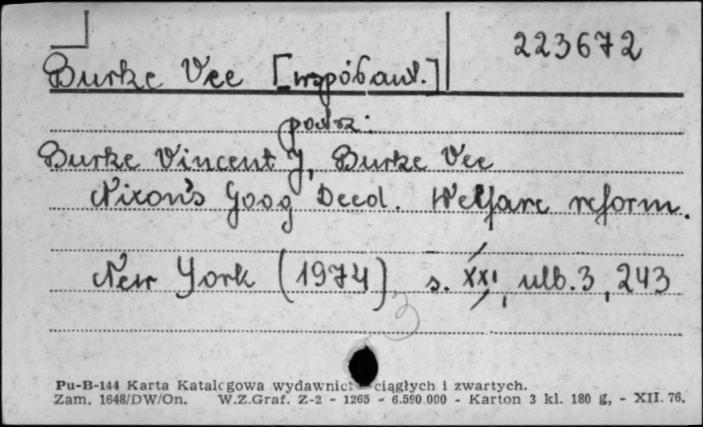 223672
Burke Vee [współaut.]
podsz:
Burke Vincent J, Burke Vee
Nixon's Goog Deed. Welfare reform.
New York (1974), s. XXI, ulb. 3, 243
3
Pu-B-144 Karta Katalogowa wydawnict ciągłych i zwartych.
Zam. 1648/DW/On. W.Z.Graf. Z-2 - 1265 - 6.590.000 - Karton 3 kl. 180 g, - XII. 76.